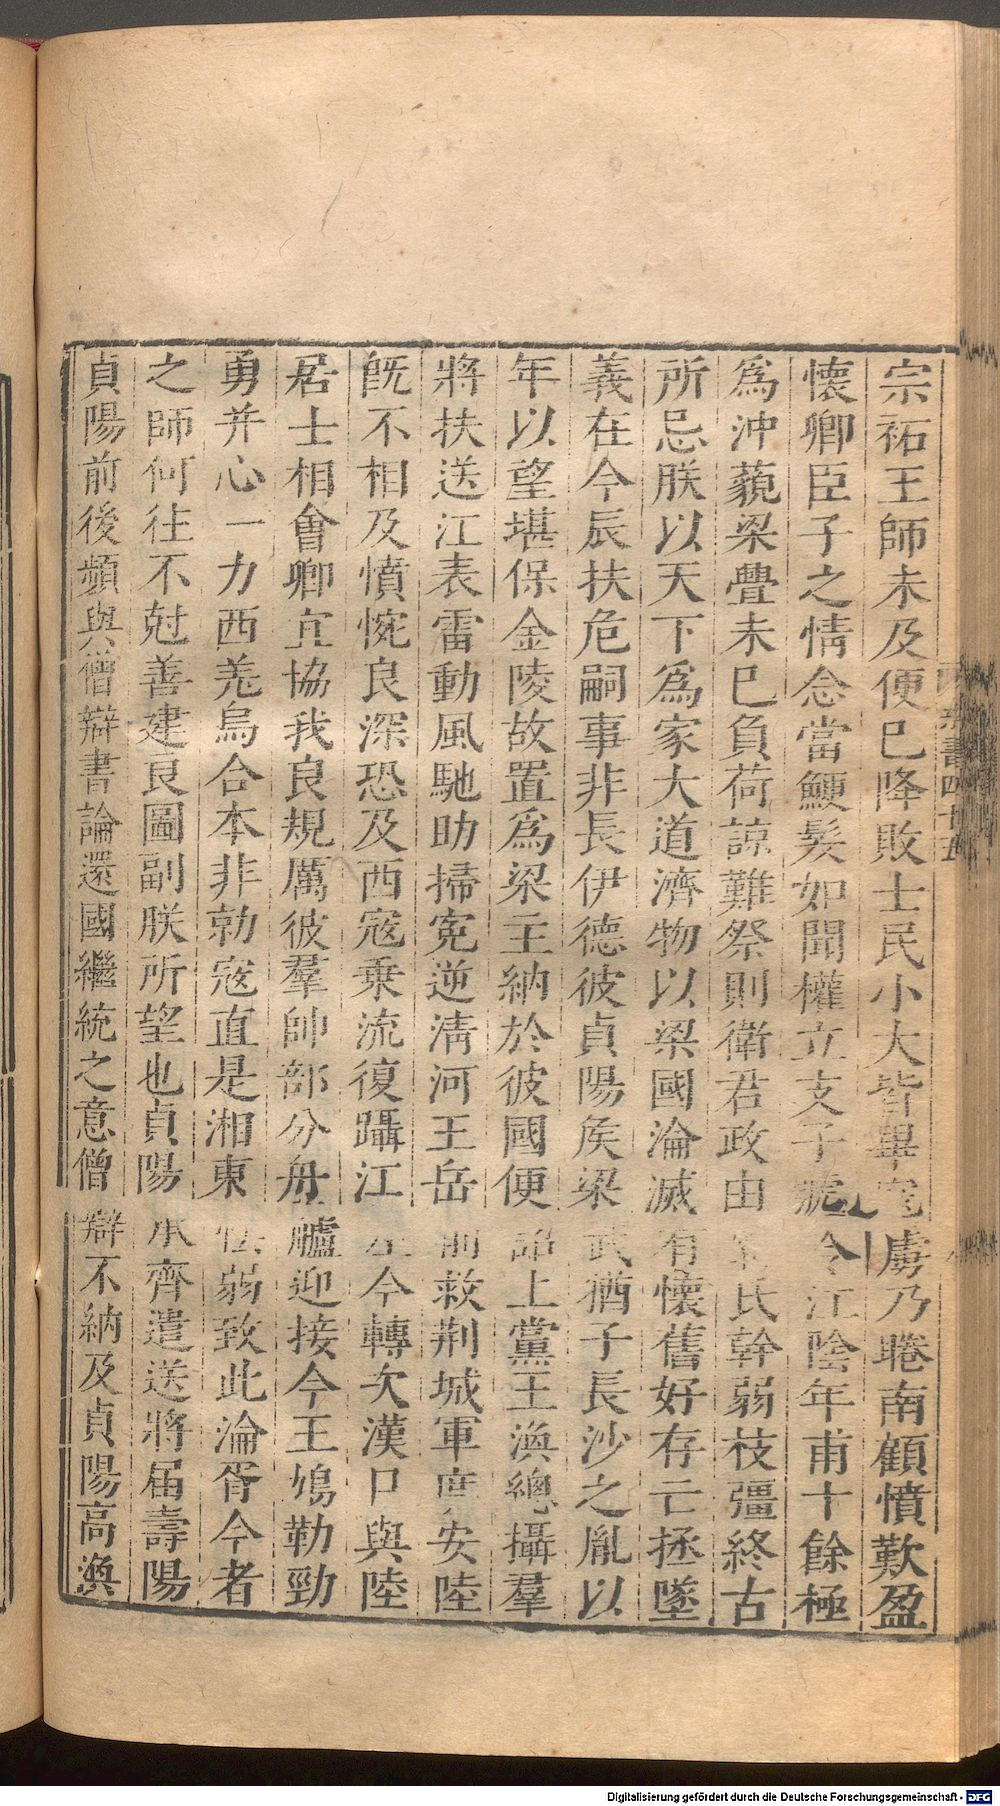 宗祏王師未及便已降敗士民小大皆畢寇虜乃睠南顧憤歎盈
懷卿臣子之情念當鯁裂如聞權立支子號令江陰年甫十餘極
爲沖藐梁舋未已負荷諒難祭則衛君政由甯氏幹弱枝彊終古
所忌朕以天下爲家大道濟物以梁國淪滅有懷舊好存亡拯墜
義在今辰扶危嗣事非長伊德彼貞陽矦梁武猶子長沙之胤以
年以望堪保金陵故置爲梁王納於彼國便詔上黨王渙總攝羣
將扶送江表雷動風馳助掃寃逆淸河王岳前救荆城軍度安陸
旣不相及憤惋良深恐及西寇乗流復躡江左今轉次漢口與陸
居士相會卿宜協我良規厲彼羣帥部分舟艫迎接今王鳩勒勁
勇并心一力西羌烏合本非勍寇直是湘東怯弱致此淪胥今者
之師何往不尅善建良圖副朕所望也貞陽承齊遣送將届壽陽
貞陽前後頻與僧辯書論還國繼統之意僧辯不納及貞陽高渙
梁書四十五
Digitalisierung gefördert durch die Deutsche Forschungsgemeinschaft - DFG